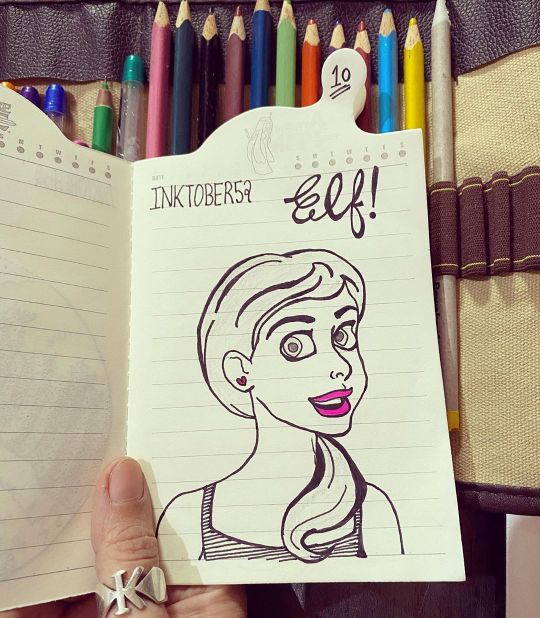 10
INKTOBER52 Elf!
DATE
S M T W T F S
K